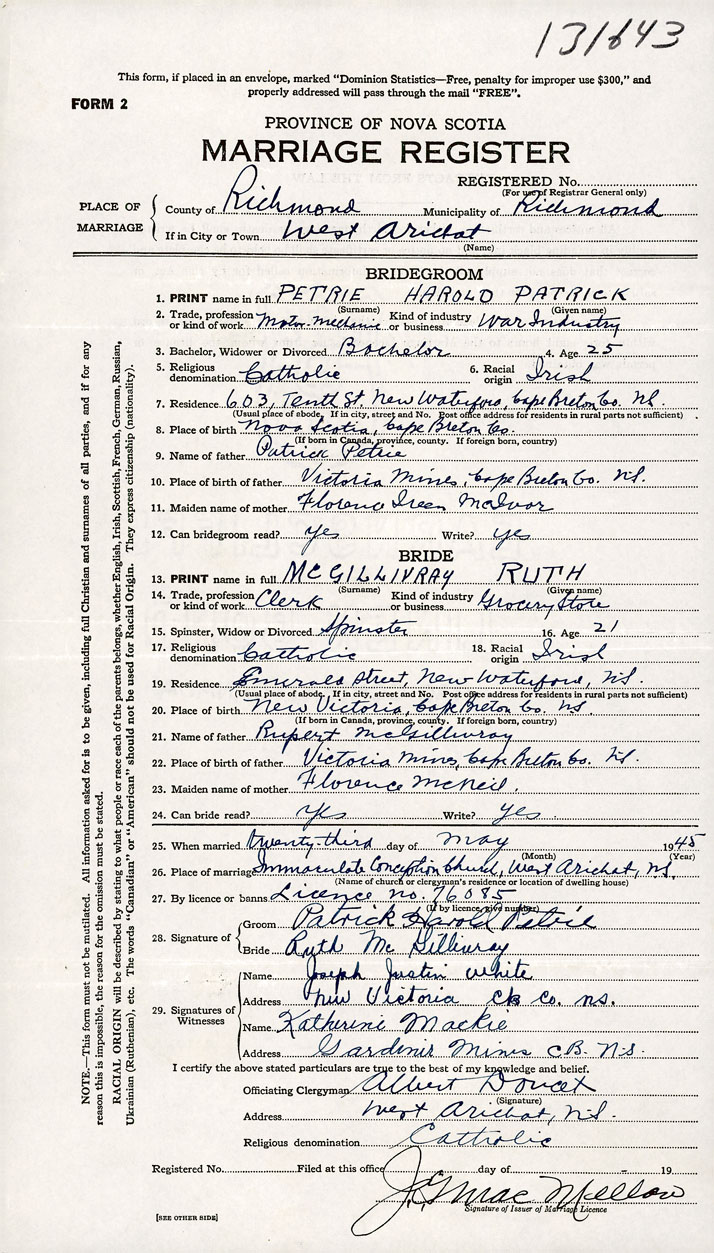 131643
This form, if placed in an envelope, marked "Dominion Statistics—Free, penalty for improper use $300," and
properly addressed will pass through the mail "FREE".
FORM 2
PROVINCE OF NOVA SCOTIA
MARRIAGE REGISTER
REGISTERED No.
(For use of Registrar General only)
PLACE OF MARRIAGE { County of Richmond Municipality of Richmond
If in City or Town West Arichat
(Name)
BRIDEGROOM
1. PRINT name in full PETRIE HAROLD PATRICK
(Surname) (Given name)
2. Trade, profession or kind of work Motor-Mechanic Kind of industry or business War Industry
3. Bachelor, Widower or Divorced Bachelor 4. Age 25
5. Religious denomination Catholic 6. Racial origin Irish
7. Residence 603, Tenth St. New Waterford Cape Breton Co. NS.
(Usual place of abode. If in city, street and No. Post office address for residents in rural parts not sufficient)
8. Place of birth Nova Scotia, Cape Breton Co.
(If born in Canada, province, county. If foreign born, country)
9. Name of father Patrick Petrie
10. Place of birth of father Victoria Mines, Cape Breton Co. NS.
11. Maiden name of mother Florence Ireen McIvor
12. Can bridegroom read? yes Write? yes
BRIDE
13. PRINT name in full MCGILLIVRAY RUTH
(Surname) (Given name)
14. Trade, profession or kind of work Clerk Kind of industry or business Grocery Store
15. Spinster, Widow or Divorced Spinster 16. Age 21
17. Religious denomination Catholic 18. Racial origin Irish
19. Residence Emerald Street, New Waterford, NS.
(Usual place of abode. If in city, street and No. Post office address for residents in rural parts not sufficient)
20. Place of birth New Victoria, Cape Breton Co. NS
(If born in Canada, province, county. If foreign born, country)
21. Name of father Rupert McGillivray
22. Place of birth of father Victoria Mines, Cape Breton Co. NS.
23. Maiden name of mother Florence McNeil.
24. Can bride read? Yes Write? Yes
25. When married twenty-third day of May 1945
(Month) (Year)
26. Place of marriage Immaculate Conception Church, West Arichat, NS.
(Name of church or clergyman's residence or location of dwelling house)
27. By licence or banns Licence no. 76085
(If by licence, give number)
28. Signature of { Groom Patrick Harold Petrie
Bride Ruth McGillivray
29. Signatures of Witnesses { Name Joseph Justin White
Address New Victoria CB Co. NS.
Name Katherine Mackie
Address Gardiner Mines C.B. N.S.
I certify the above stated particulars are true to the best of my knowledge and belief.
Officiating Clergyman Albert Doucet
(Signature)
Address West Arichat, N.S.
Religious denomination Catholic
Registered No. Filed at this office day of 19
J. G. MacMellow
Signature of Issuer of Marriage Licence
[SEE OTHER SIDE]
NOTE.—This form must not be mutilated. All information asked for is to be given, including full Christian and surnames of all parties, and if for any
reason this is impossible, the reason for the omission must be stated.
RACIAL ORIGIN will be described by stating to what people or race each of the parents belongs, whether English, Irish, Scottish, French, German, Russian,
Ukrainian (Ruthenian), etc. The words "Canadian" or "American" should not be used for Racial Origin. They express citizenship (nationality).